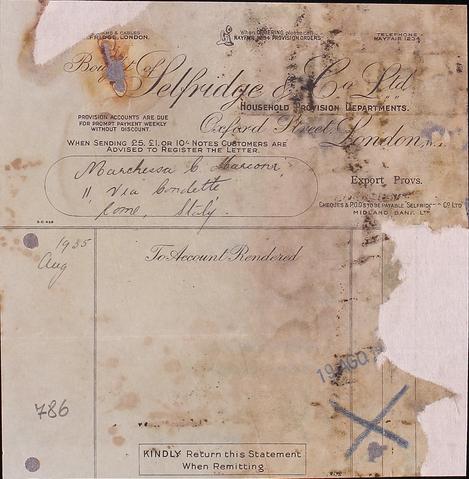 & CABLES
FRIDGE, LONDON.
When ORDERING please call
MAYFAIR 1234 PROVISION ORDERS
TELEPHONE
MAYFAIR 1234
Bought of
Selfridge & Co Ltd
HOUSEHOLD PROVISION DEPARTMENTS.
PROVISION ACCOUNTS ARE DUE
FOR PROMPT PAYMENT WEEKLY
WITHOUT DISCOUNT.
Oxford Street, London, W.1.
WHEN SENDING £5, £1, OR 10/- NOTES CUSTOMERS ARE
ADVISED TO REGISTER THE LETTER.
Marchessa C. Marconi
11 Via Condotte
Rome, Italy.
Export Provs.
CHEQUES & P.O.'S TO BE PAYABLE SELFRIDGE & CO LTD
MIDLAND BANK LTD
1935
Aug
To Account Rendered
19 AGO
786
KINDLY Return this Statement
When Remitting.